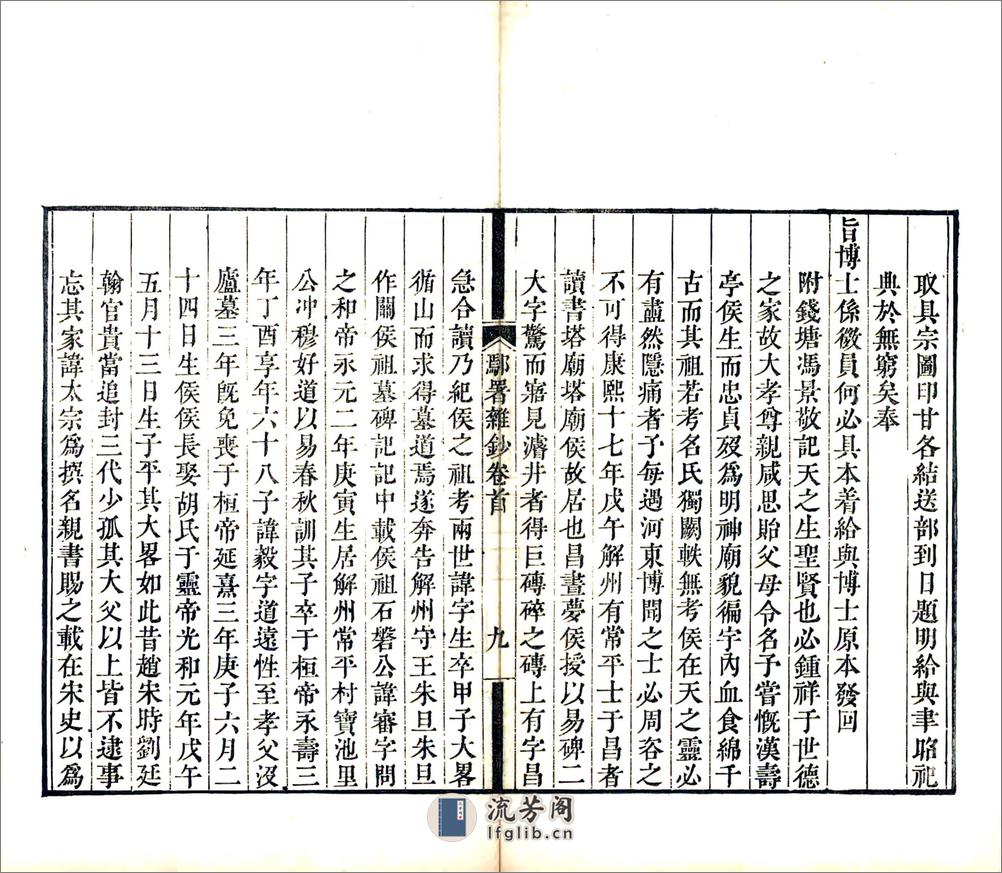 取具宗圖印甘各結送部到日題明給與聿昭祀
典於無窮矣奉
旨博士係微員何必具本着給與博士原本發回
附錢塘馮景敬記天之生聖賢也必鍾祥于世德
之家故大孝尊親咸思貽父母令名予嘗慨漢壽
亭侯生而忠貞歿爲明神廟貌徧宇內血食綿千
古而其祖若考名氏獨闕軼無考侯在天之靈必
有盡然隱痛者予每遇河東博聞之士必周咨之
不可得康熙十七年戊午解州有常平士于昌者
讀書塔廟塔廟侯故居也昌晝夢侯授以易碑二
大字驚而寤見濬井者得巨磚碎之磚上有字昌
鄢署雜鈔卷首
九
急合讀乃紀侯之祖考兩世諱字生卒甲子大畧
循山而求得墓道焉遂奔告解州守王朱旦朱旦
作關侯祖墓碑記記中載侯祖石磐公諱審字問
之和帝永元二年庚寅生居解州常平村寶池里
公沖穆好道以易春秋訓其子卒于桓帝永壽三
年丁酉享年六十八子諱毅字道遠性至孝父沒
廬墓三年旣免喪于桓帝延熹三年庚子六月二
十四日生侯侯長娶胡氏于靈帝光和元年戊午
五月十三日生子平其大畧如此昔趙宋時劉延
翰官貴當追封三代少孤其大父以上皆不逮事
忘其家諱太宗爲撰名親書賜之載在宋史以爲
流芳阁
lfglib.cn